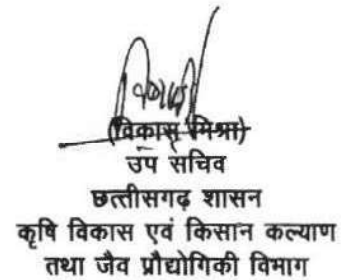 (विकास मिश्रा)
उप सचिव
छत्तीसगढ़ शासन
कृषि विकास एवं किसान कल्याण
तथा जैव प्रौद्योगिकी विभाग